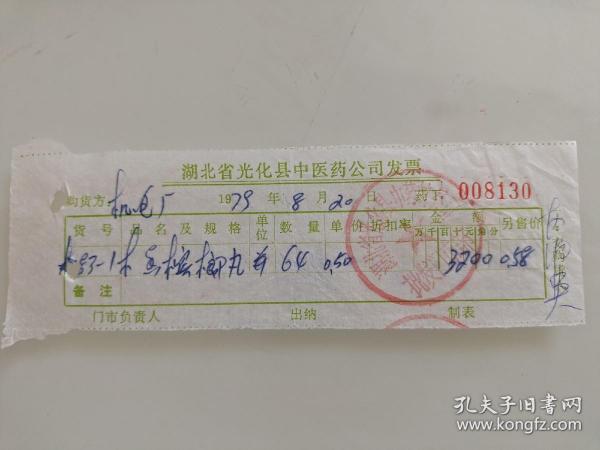 湖北省光化县中医药公司发票
购货方 机电厂 1979年8月20日 药丁: 008130
货号 品名及规格 单位 数量 单价 折扣率 金额 万千百十元角分 另售价
木香槟榔丸 64 0.50 3200 0.58
备注
门市负责人 出纳 制表
孔夫子旧书网